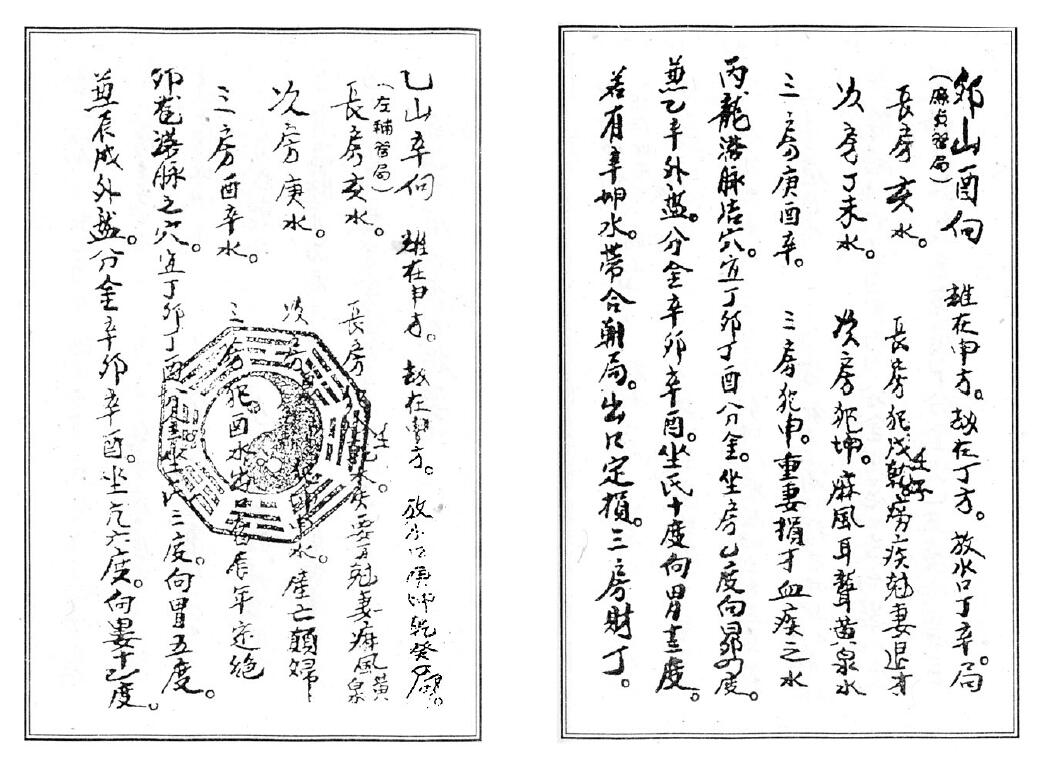 卯山酉向 雄在申方。劫在丁方。放水口丁辛。局
(廉貞管局)
長房亥水。 長房犯戌乾壬子癆疾尅妻退才
次房丁未水。 次房犯坤。麻風耳聾黃泉水
三房庚酉辛。 三房犯申。重妻損才血疾之水
丙龍落脉结穴。宜丁卯丁酉分金。坐房乙度向昴四度。
兼乙辛外盤。分金辛卯辛酉。坐氐十度向胃圭度。
若有辛坤水。帶合朝局。出口定損。三房財丁。
乙山辛向 雄在申方。劫在申方。放水口庚坤乾癸局。
(左輔管局)
長房亥水。 長房 疾妻 尅妻麻風黃泉
次房庚水。 次房 水。產亡顛婦
三房酉辛水。 三房犯酉水 年定絕
卯龍落脉之穴。宜丁卯丁酉 坐氐三度。向胃五度。
兼辰戌外盤。分金辛卯辛酉。坐亢六度。向婁十一度。